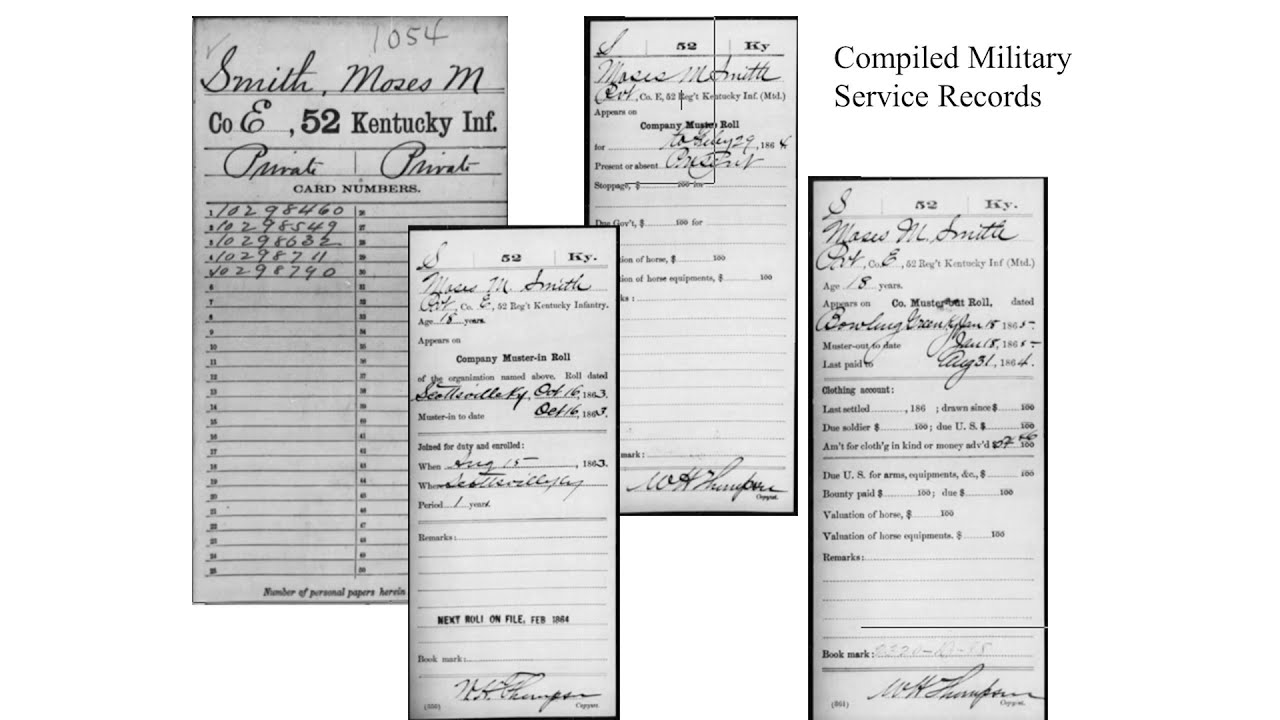 1054
Smith, Moses M
Co E, 52 Kentucky Inf.
Private | Private
CARD NUMBERS.
1 10298460 26
2 10298549 27
3 10298632 28
4 10298711 29
5 10298790 30
6
7
8
9
10
11
12
13
14
15
16
17
18
19
20
21
22
23
24
25
31
32
33
34
35
36
37
38
39
40
41
42
43
44
45
46
47
48
49
50
Number of personal papers herein
S | 52 | Ky.
Moses M. Smith
Pvt, Co. E, 52 Reg't Kentucky Infantry.
Age 18 years.
Appears on
Company Muster-in Roll
of the organization named above. Roll dated
Scottsville Ky, Oct 16, 1863.
Muster-in to date Oct 16, 1863.
Joined for duty and enrolled:
When Aug 15, 1863.
Where Scottsville Ky
Period 1 years.
Remarks:
NEXT ROLL ON FILE, FEB 1864
Book mark:
W.H. Thompson
(358) Copyist.
S | 52 | Ky
Moses M Smith
Pvt, Co. E, 52 Reg't Kentucky Inf. (Mtd.)
Appears on
Company Muster Roll
for to Feby 29, 1864
Present or absent Present
Stoppage, $ 100 for
Due Gov't, $ 100 for
tion of horse, $ 100
tion of horse equipments, $ 100
ks:
mark:
W H Thompson
Copyist.
Compiled Military
Service Records
S | 52 | Ky.
Moses M. Smith
Pvt, Co. E, 52 Reg't Kentucky Inf (Mtd.)
Age 18 years.
Appears on Co. Muster-out Roll, dated
Bowling Green Ky Jan 18, 1865.
Muster-out to date Jan 18, 1865.
Last paid to Aug 31, 1864.
Clothing account:
Last settled , 186 ; drawn since $ 100
Due soldier $ 100; due U. S. $ 100
Am't for cloth'g in kind or money adv'd $ 100
Due U. S. for arms, equipments, &c., $ 100
Bounty paid $ 100; due $ 100
Valuation of horse, $ 100
Valuation of horse equipments. $ 100
Remarks:
Book mark:
W H Thompson
(361) Copyist.